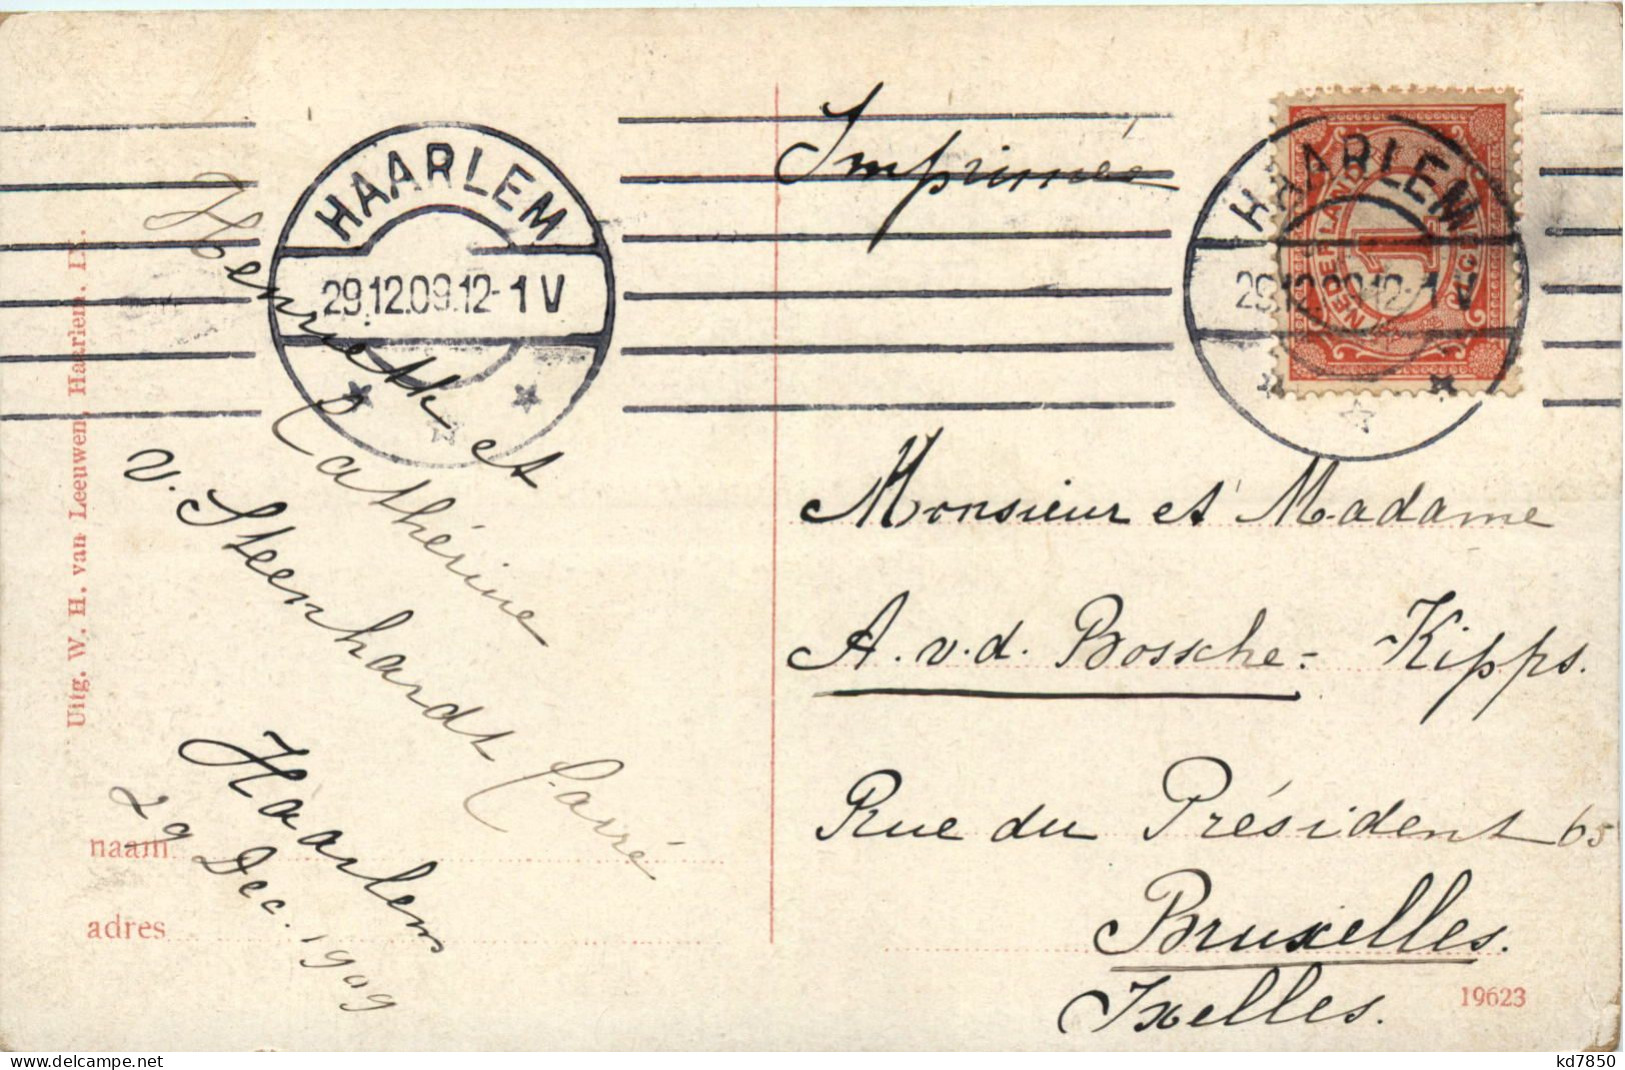 Imprimée
HAARLEM
29.12.09.12-1V
HAARLEM
29.12.09.12-1V
NEDERLAND
1
Henriette et
Cathérine
v. Steenhardt Carré
Haarlem
29 Dec. 1909
Monsieur et Madame
A. v.d. Bossche-Kipps.
Rue du Président 65
Bruxelles.
Ixelles.
naam
adres
Uitg. W. H. van Leeuwen, Haarlem. IX.
19623
delcampe.net
kd7850